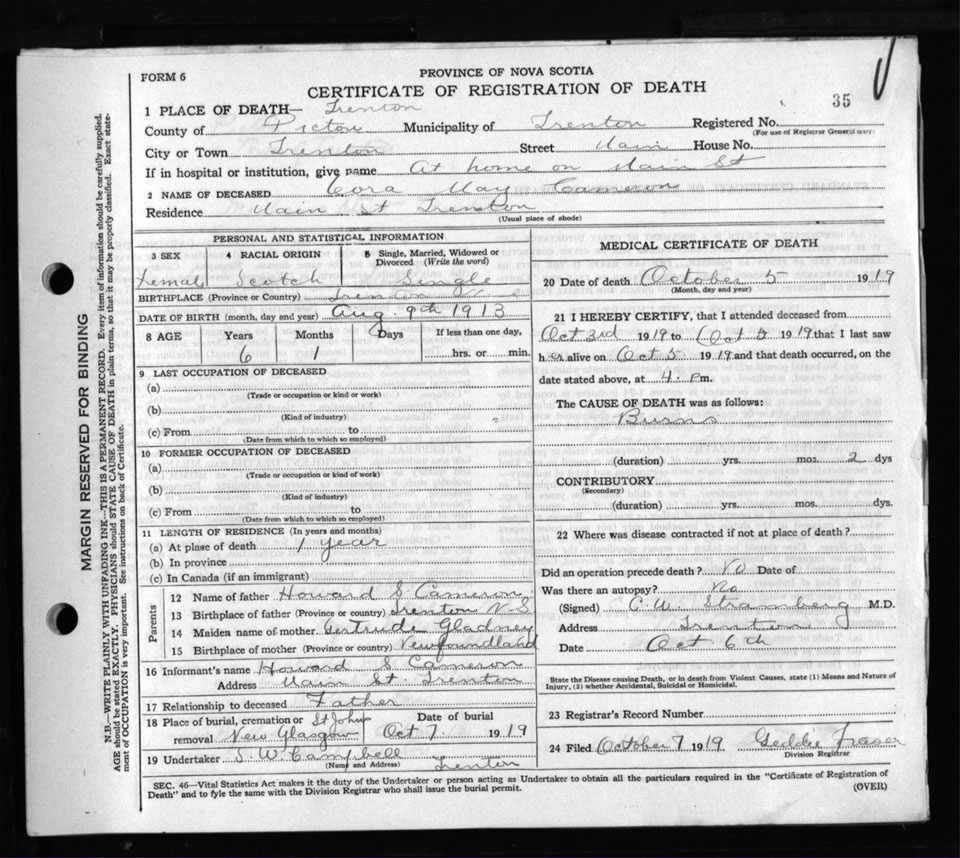 FORM 6
PROVINCE OF NOVA SCOTIA
CERTIFICATE OF REGISTRATION OF DEATH
35
1 PLACE OF DEATH— Trenton
County of Pictou Municipality of Trenton Registered No.
(For use of Registrar General only)
City or Town Trenton Street Main House No.
If in hospital or institution, give name At home on Main St
2 NAME OF DECEASED Cora May Cameron
Residence Main St Trenton
(Usual place of abode)
PERSONAL AND STATISTICAL INFORMATION
3 SEX 4 RACIAL ORIGIN 5 Single, Married, Widowed or Divorced (Write the word)
Female Scotch Single
BIRTHPLACE (Province or Country) Trenton
DATE OF BIRTH (month, day and year) Aug. 9th 1913
8 AGE Years Months Days If less than one day,
6 1 hrs. or min.
9 LAST OCCUPATION OF DECEASED
(a)
(Trade or occupation or kind or work)
(b)
(Kind of industry)
(c) From to
(Date from which to which so employed)
10 FORMER OCCUPATION OF DECEASED
(a)
(Trade or occupation or kind of work)
(b)
(Kind of industry)
(c) From to
(Date from which to which so employed)
11 LENGTH OF RESIDENCE (In years and months)
(a) At place of death 1 year
(b) In province
(c) In Canada (if an immigrant)
Parents
12 Name of father Howard S Cameron
13 Birthplace of father (Province or country) Trenton N S
14 Maiden name of mother Gertrude Gladney
15 Birthplace of mother (Province or country) Newfoundland
16 Informant's name Howard S Cameron
Address Main St. Trenton
17 Relationship to deceased Father
18 Place of burial, cremation or removal St Johns New Glasgow Date of burial Oct 7. 1919
19 Undertaker J. W. Campbell Trenton
(Name and Address)
MEDICAL CERTIFICATE OF DEATH
20 Date of death October 5 1919
(Month, day and year)
21 I HEREBY CERTIFY, that I attended deceased from
Oct 3rd 1919 to Oct 5 1919 that I last saw
her alive on Oct 5 1919 and that death occurred, on the
date stated above, at 4. Pm.
The CAUSE OF DEATH was as follows:
Burns
(duration) yrs. mos. 2 dys
CONTRIBUTORY
(Secondary)
(duration) yrs. mos. dys.
22 Where was disease contracted if not at place of death?
Did an operation precede death? No Date of
Was there an autopsy? No
(Signed) C. W. Stramberg M.D.
Address Trenton
Date Oct 6th
State the Disease causing Death, or in death from Violent Causes, state (1) Means and Nature of
Injury, (2) whether Accidental, Suicidal or Homicidal.
23 Registrar's Record Number
24 Filed October 7 1919 Geddie Fraser
Division Registrar
SEC. 46—Vital Statistics Act makes it the duty of the Undertaker or person acting as Undertaker to obtain all the particulars required in the "Certificate of Registration of
Death" and to fyle the same with the Division Registrar who shall issue the burial permit.
(OVER)
MARGIN RESERVED FOR BINDING
N.B.—WRITE PLAINLY WITH UNFADING INK—THIS IS A PERMANENT RECORD. Every item of information should be carefully supplied.
AGE should be stated EXACTLY. PHYSICIANS should STATE CAUSE OF DEATH in plain terms, so that it may be properly classified. Exact state-
ment of OCCUPATION is very important. See instructions on back of Certificate.